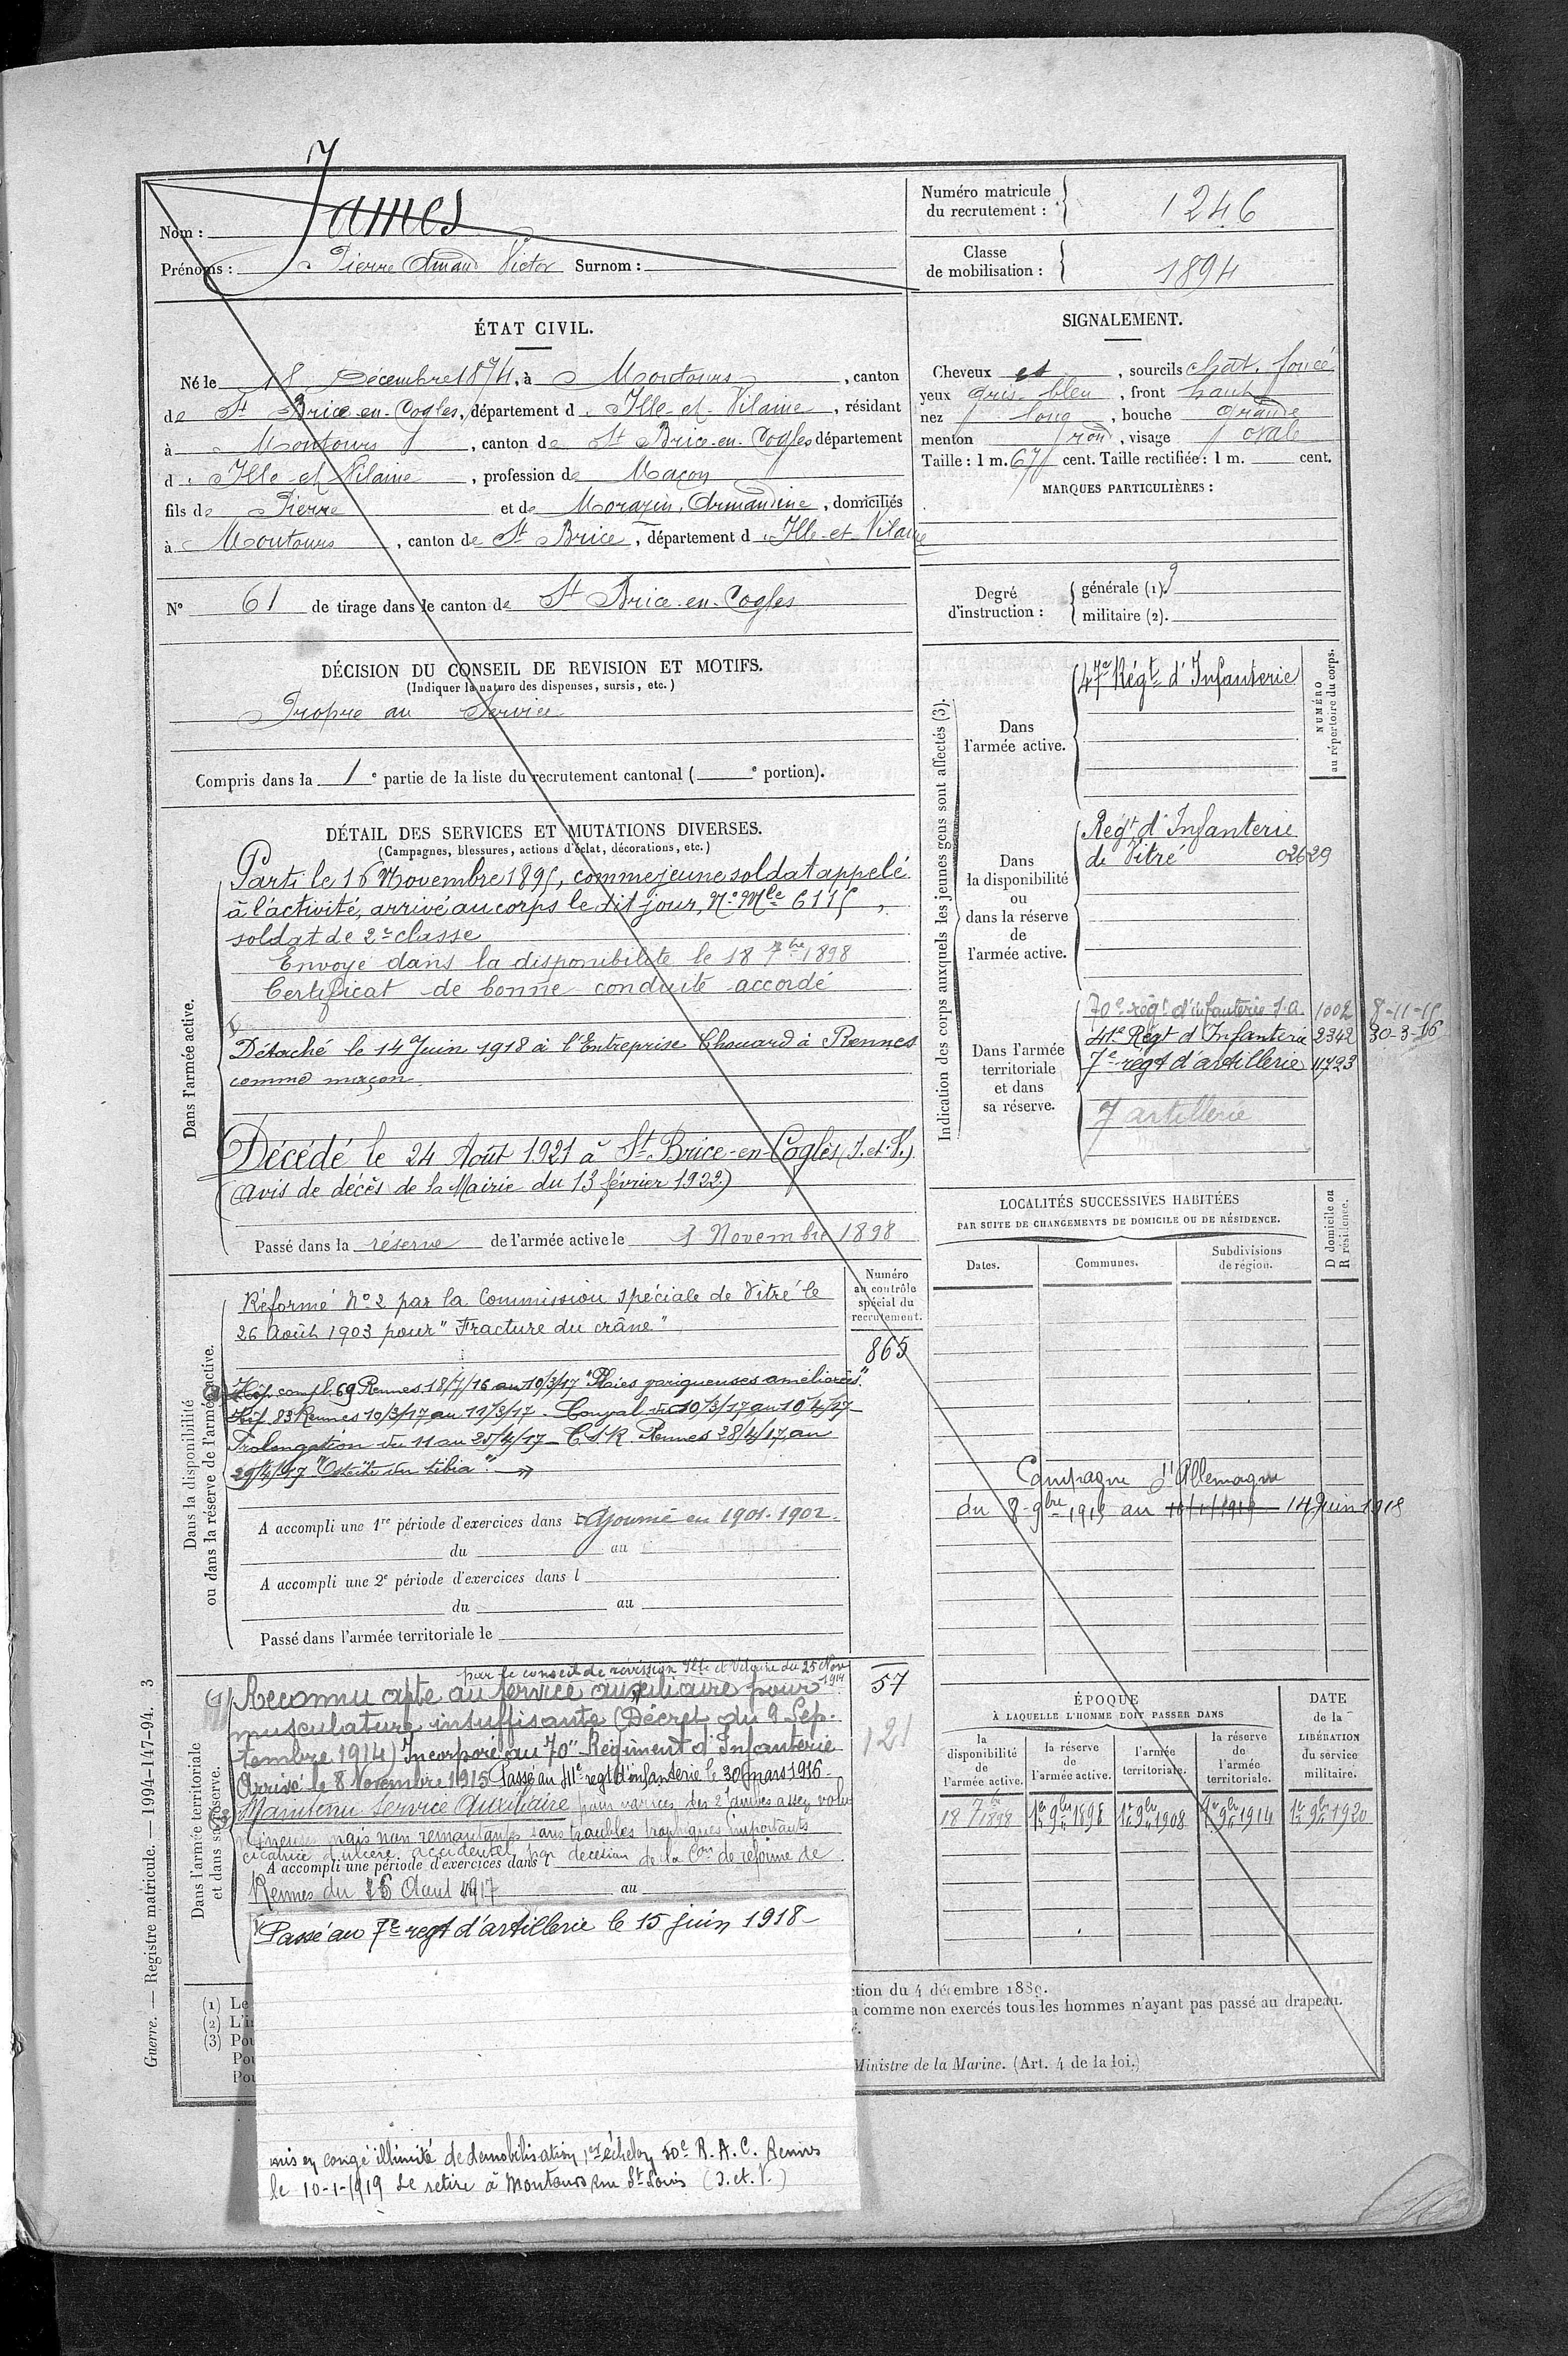 Nom : James
Prénoms : Pierre Amand Victor Surnom :
Numéro matricule
du recrutement : 1246
Classe
de mobilisation : 1894
ÉTAT CIVIL.
Né le 18 Décembre 1874, à Montours, canton
de St Brice-en-Cogles, département d Ille-et-Vilaine, résidant
à Montours, canton de St Brice-en-Cogles département
d Ille et Vilaine, profession de Maçon
fils de Pierre et de Morazin, Armandine, domiciliés
à Montours, canton de St Brice, département d Ille-et-Vilaine
N° 61 de tirage dans le canton de St Brice-en-Cogles
SIGNALEMENT.
Cheveux et, sourcils chat. foncé
yeux gris-bleu, front haut
nez long, bouche grande
menton rond, visage ovale
Taille : 1 m. 67 cent. Taille rectifiée : 1 m. cent.
MARQUES PARTICULIÈRES :
Degré
d'instruction :
générale (1). 3
militaire (2).
DÉCISION DU CONSEIL DE REVISION ET MOTIFS.
(Indiquer la nature des dispenses, sursis, etc.)
Propre au Service
Compris dans la 1e partie de la liste du recrutement cantonal ( e portion).
DÉTAIL DES SERVICES ET MUTATIONS DIVERSES.
(Campagnes, blessures, actions d'éclat, décorations, etc.)
Dans l'armée active.
Parti le 16 Novembre 1895, comme jeune soldat appelé
à l'activité, arrivé au corps le dit jour, N° Mle 6115,
soldat de 2e classe
Envoyé dans la disponibilité le 18 7bre 1898
Certificat de bonne conduite accordé
Détaché le 14 Juin 1918 à l'Entreprise Chouard à Rennes
comme maçon
Décédé le 24 Août 1921 à St-Brice-en-Coglès (I.-et-V.)
(avis de décès de la Mairie du 13 février 1922)
Passé dans la réserve de l'armée active le 1 Novembre 1898
Indication des corps auxquels les jeunes gens sont affectés (3).
NUMÉRO
au répertoire du corps.
Dans
l'armée active.
47e Régt d'Infanterie
Dans
la disponibilité
ou
dans la réserve
de
l'armée active.
Régt d'Infanterie
de Vitré 02629
Dans l'armée
territoriale
et dans
sa réserve.
70e régt d'infanterie S.A. 1002 8-11-15
41e Régt d'Infanterie 2342 30-3-16
7e régt d'artillerie 11723
7 artillerie
Dans la disponibilité
ou dans la réserve de l'armée active.
Numéro
au contrôle
spécial du
recrutement.
865
Réformé N° 2 par la Commission spéciale de Vitré le
26 Août 1903 pour "Fracture du crâne"
Hôp. compl. 69 Rennes 18/7/16 au 10/3/17 "Plaies variqueuses améliorées".
Hôp. 83 Rennes 10/3/17 au 11/3/17 - Conval. du 10/3/17 au 10/4/17
Prolongation du 11 au 25/4/17 - C.S.R. Rennes 28/4/17 au
29/4/17 "Ostéite du tibia".
A accompli une 1re période d'exercices dans Ajourné en 1901-1902.
du au
A accompli une 2e période d'exercices dans l
du au
Passé dans l'armée territoriale le
LOCALITÉS SUCCESSIVES HABITÉES
PAR SUITE DE CHANGEMENTS DE DOMICILE OU DE RÉSIDENCE.
Dates. Communes. Subdivisions
de région.
D domicile ou
R résidence.
Campagne d'Allemagne
du 8-9bre 1915 au 10/1/1919 14 Juin 1918
Dans l'armée territoriale
et dans sa réserve.
par le conseil de révision Ille et Vilaine du 25 Nov
1914
Reconnu apte au service auxiliaire pour
musculature insuffisante (Décret du 9 Sep-
tembre 1914) Incorporé au 70e Régiment d'Infanterie
Arrivé le 8 Novembre 1915 Passé au 41e regt d'infanterie le 30 mars 1916-
Maintenu Service Auxiliaire pour varices des 2 jambes assez volu
mineuses mais non remontantes sans troubles trophiques importants
cicatrice d'ulcère accidentel par décision de la Con de réforme de
A accompli une période d'exercices dans l
Rennes du 16 Aout 1917 au
57
121
Passé au 7e regt d'artillerie le 15 juin 1918-
mis en congé illimité de démobilisation 1er échelon 50e R. A. C. Rennes
le 10-1-1919 Se retire à Montours rue St Louis (I. et. V.)
ÉPOQUE
À LAQUELLE L'HOMME DOIT PASSER DANS
la
disponibilité
de
l'armée active.
la réserve
de
l'armée active.
l'armée
territoriale.
la réserve
de
l'armée
territoriale.
DATE
de la
LIBÉRATION
du service
militaire.
18 7bre 1898 1er 9bre 1898 1er 9bre 1908 1er 9bre 1914 1er 9bre 1920
(1) Le
(2) L'i
(3) Pou
Pou
Pou
ction du 4 décembre 1889.
a comme non exercés tous les hommes n'ayant pas passé au drapeau.
Ministre de la Marine. (Art. 4 de la loi.)
Guerre. — Registre matricule. — 1994-147-94. 3